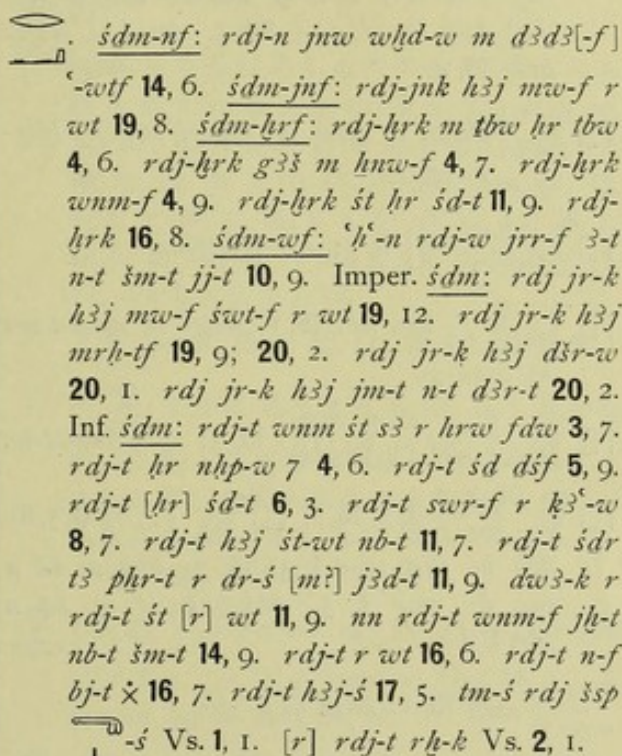 . śdm-nf: rdj-n jnw wḫd-w m dꜣdꜣ[-f]
ꜥ-wtf 14, 6. śdm-jnf: rdj-jnk hꜣj mw-f r
wt 19, 8. śdm-ḫrf: rdj-ḫrk m ṯbw ḥr tbw
4, 6. rdj-ḫrk gꜣš m ẖnw-f 4, 7. rdj-ḫrk
wnm-f 4, 9. rdj-ḫrk śt ḥr śd-t 11, 9. rdj-
ḫrk 16, 8. śdm-wf: ꜥḥꜥ-n rdj-w jrr-f ꜣ-t
n-t šm-t jj-t 10, 9. Imper. śdm: rdj jr-k
hꜣj mw-f św​t-f r wt 19, 12. rdj jr-k hꜣj
mrḥ-tf 19, 9; 20, 2. rdj jr-k hꜣj dšr-w
20, 1. rdj jr-k hꜣj jm-t n-t dꜣr-t 20, 2.
Inf. śdm: rdj-t wnm śt sꜣ r hrw fdw 3, 7.
rdj-t ḥr nḥp-w 7 4, 6. rdj-t śd dśf 5, 9.
rdj-t [ḥr] śd-t 6, 3. rdj-t swr-f r ḳꜣꜥ-w
8, 7. rdj-t hꜣj śt-wt nb-t 11, 7. rdj-t śdr
tꜣ pẖr-t r dr-ś [m?] jꜣd-t 11, 9. dwꜣ-k r
rdj-t śt [r] wt 11, 9. nn rdj-t wnm-f jḫ-t
nb-t šm-t 14, 9. rdj-t r wt 16, 6. rdj-t n-f
bj-t ẋ 16, 7. rdj-t hꜣj-ś 17, 5. tm-ś rdj šsp
-ś Vs. 1, 1. [r] rdj-t rḫ-k Vs. 2, 1.